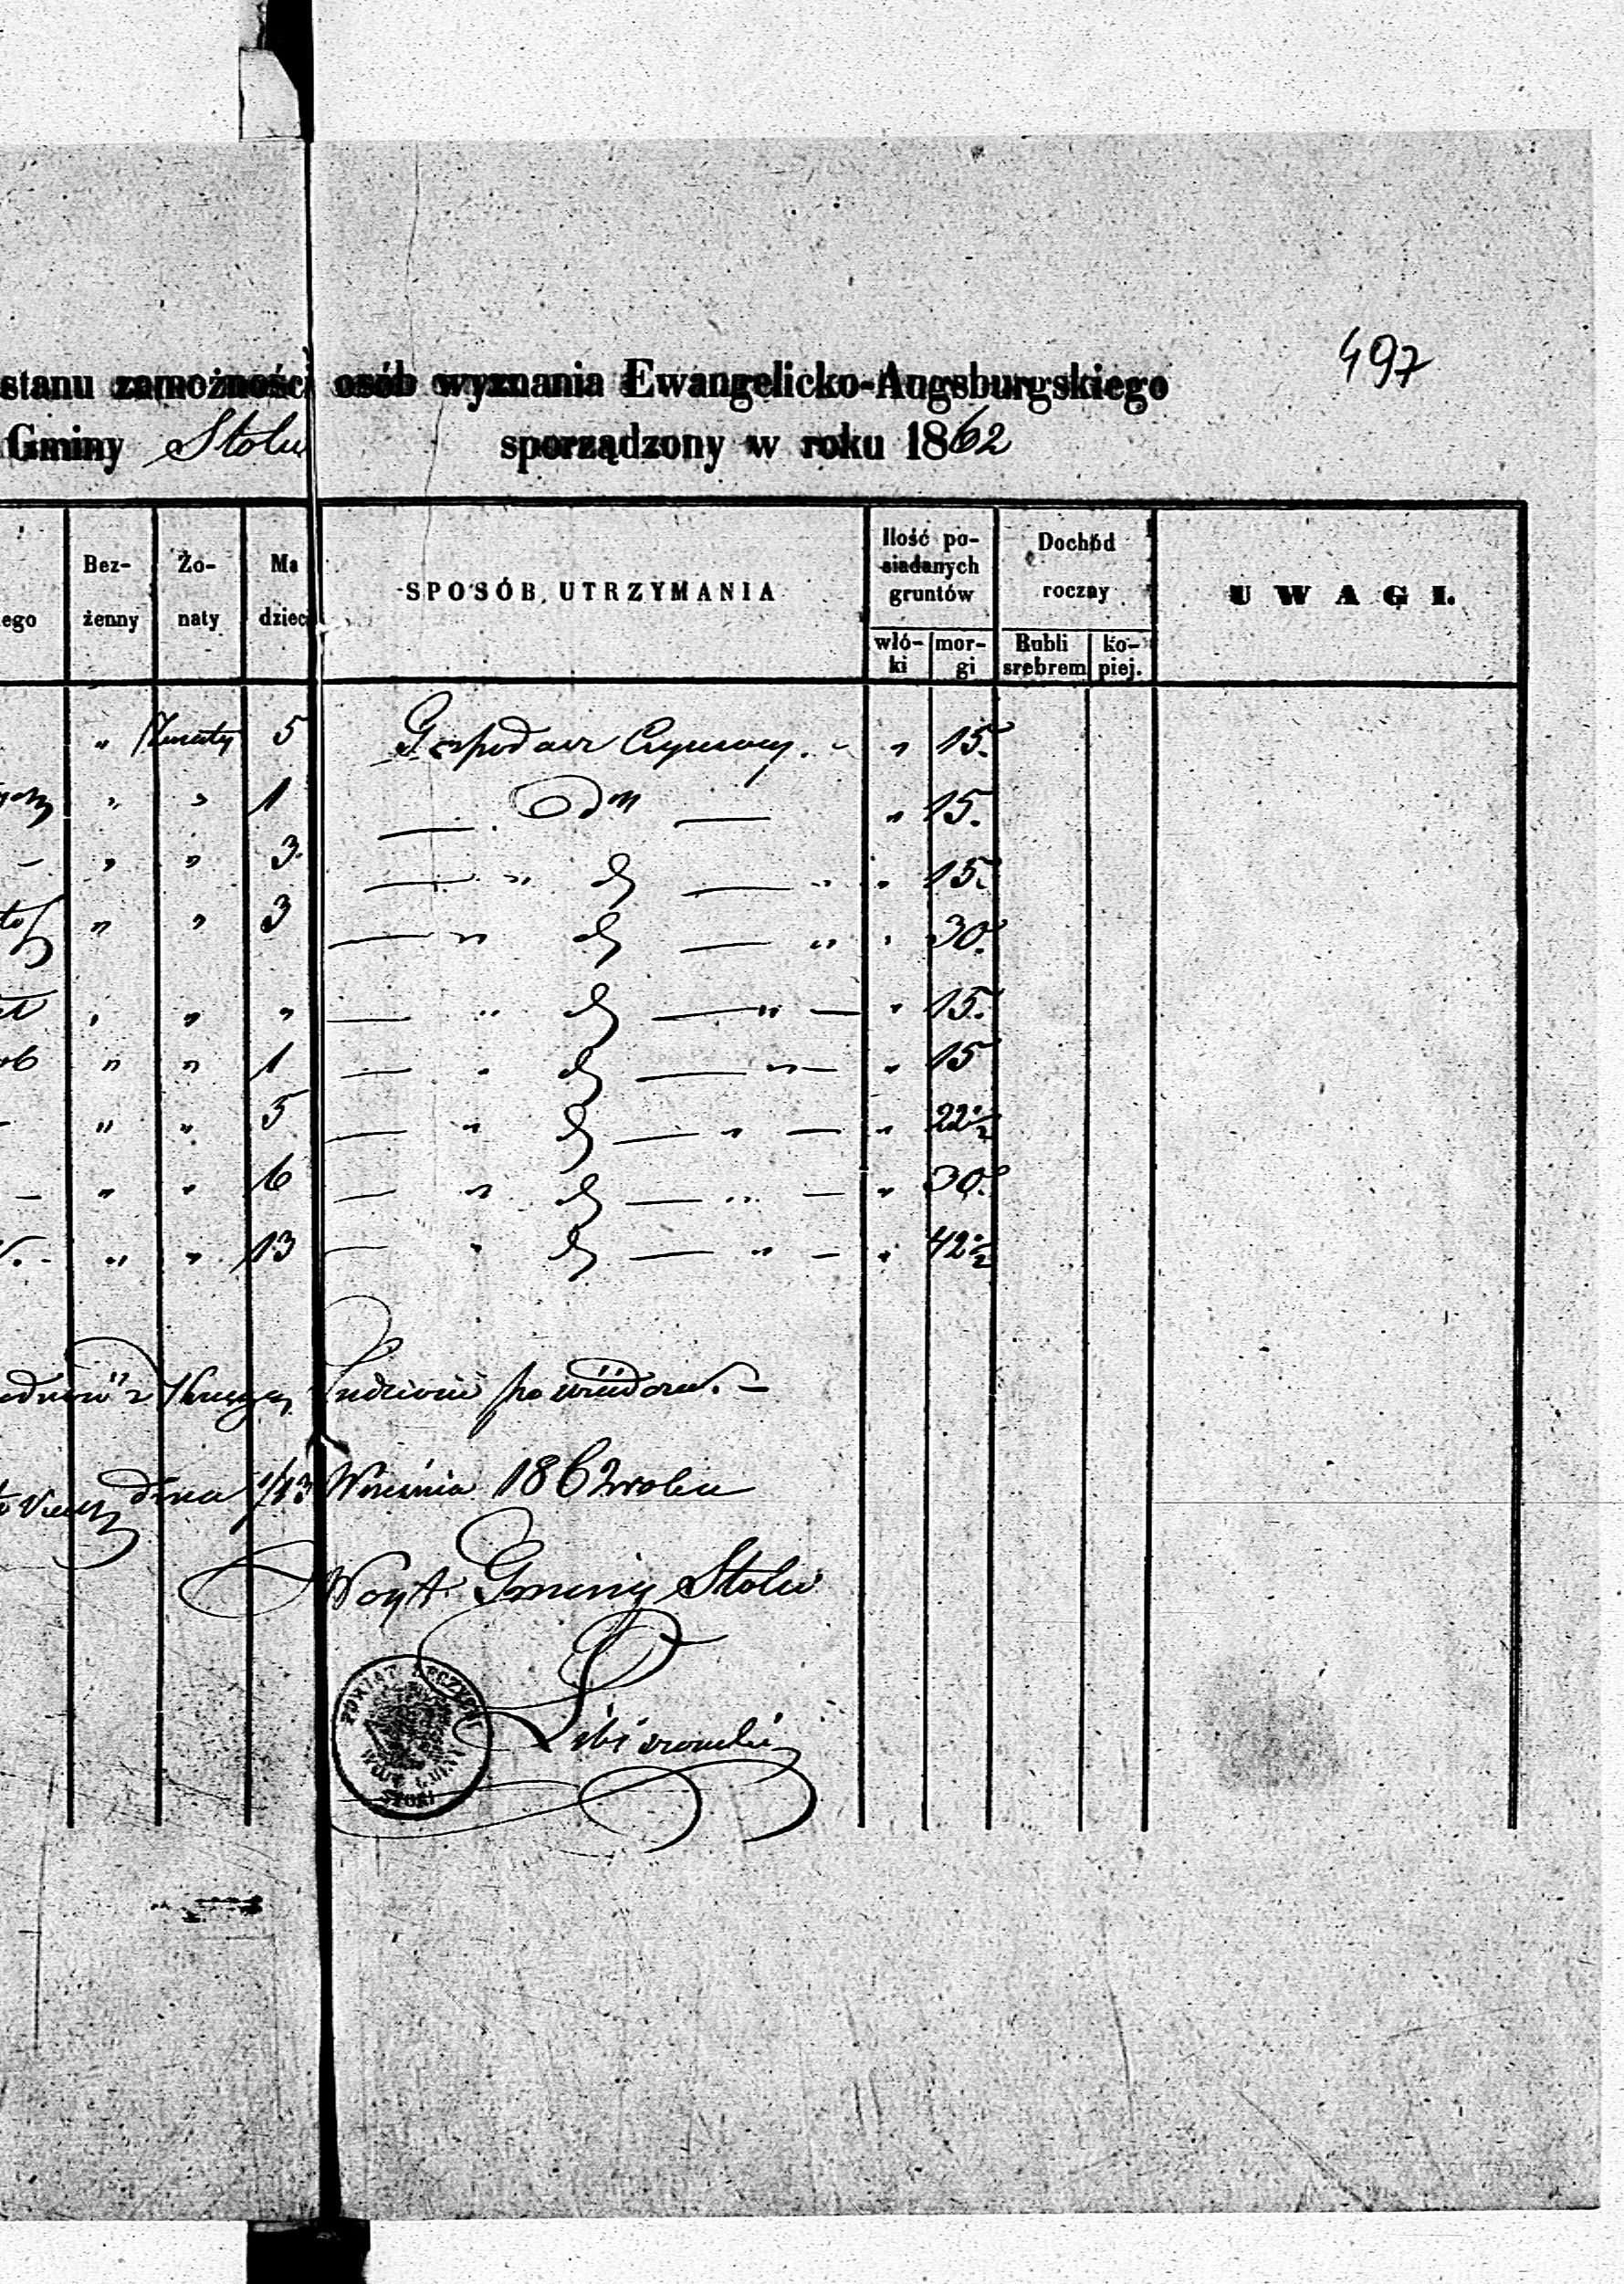 497
stanu zamożności osób wyznania Ewangelicko-Augsburgskiego
Gminy Stoki sporządzony w roku 1862
ego Bez-żenny Żo-naty Ma dzieci SPOSÓB UTRZYMANIA Ilość po-siadanych gruntów włó-ki mor-gi Dochód roczny Rubli srebrem ko-piej. UWAGI.
„ Żonaty 5 Gospodarz Czynszowy. „ 15.
„ „ 1 — dto — „ 15.
— „ „ 3. — „ d — „ „ 15.
„ „ 3 — „ d — „ „ 30.
„ „ „ — „ d — „ — „ 15.
ob „ „ 1 — „ d — „ — „ 15
— „ „ 5 — „ d — „ — „ 22½
— „ „ 6 — „ d — „ — „ 30.
„ „ 13 — „ d — „ — „ 42½
z Księgą Ludności poświadcza. —
dnia 1/13 Września 1862 roku
Woyt Gminy Stoki
POWIAT ŁĘCZYCKI
WÓJT GMINY
STOKI